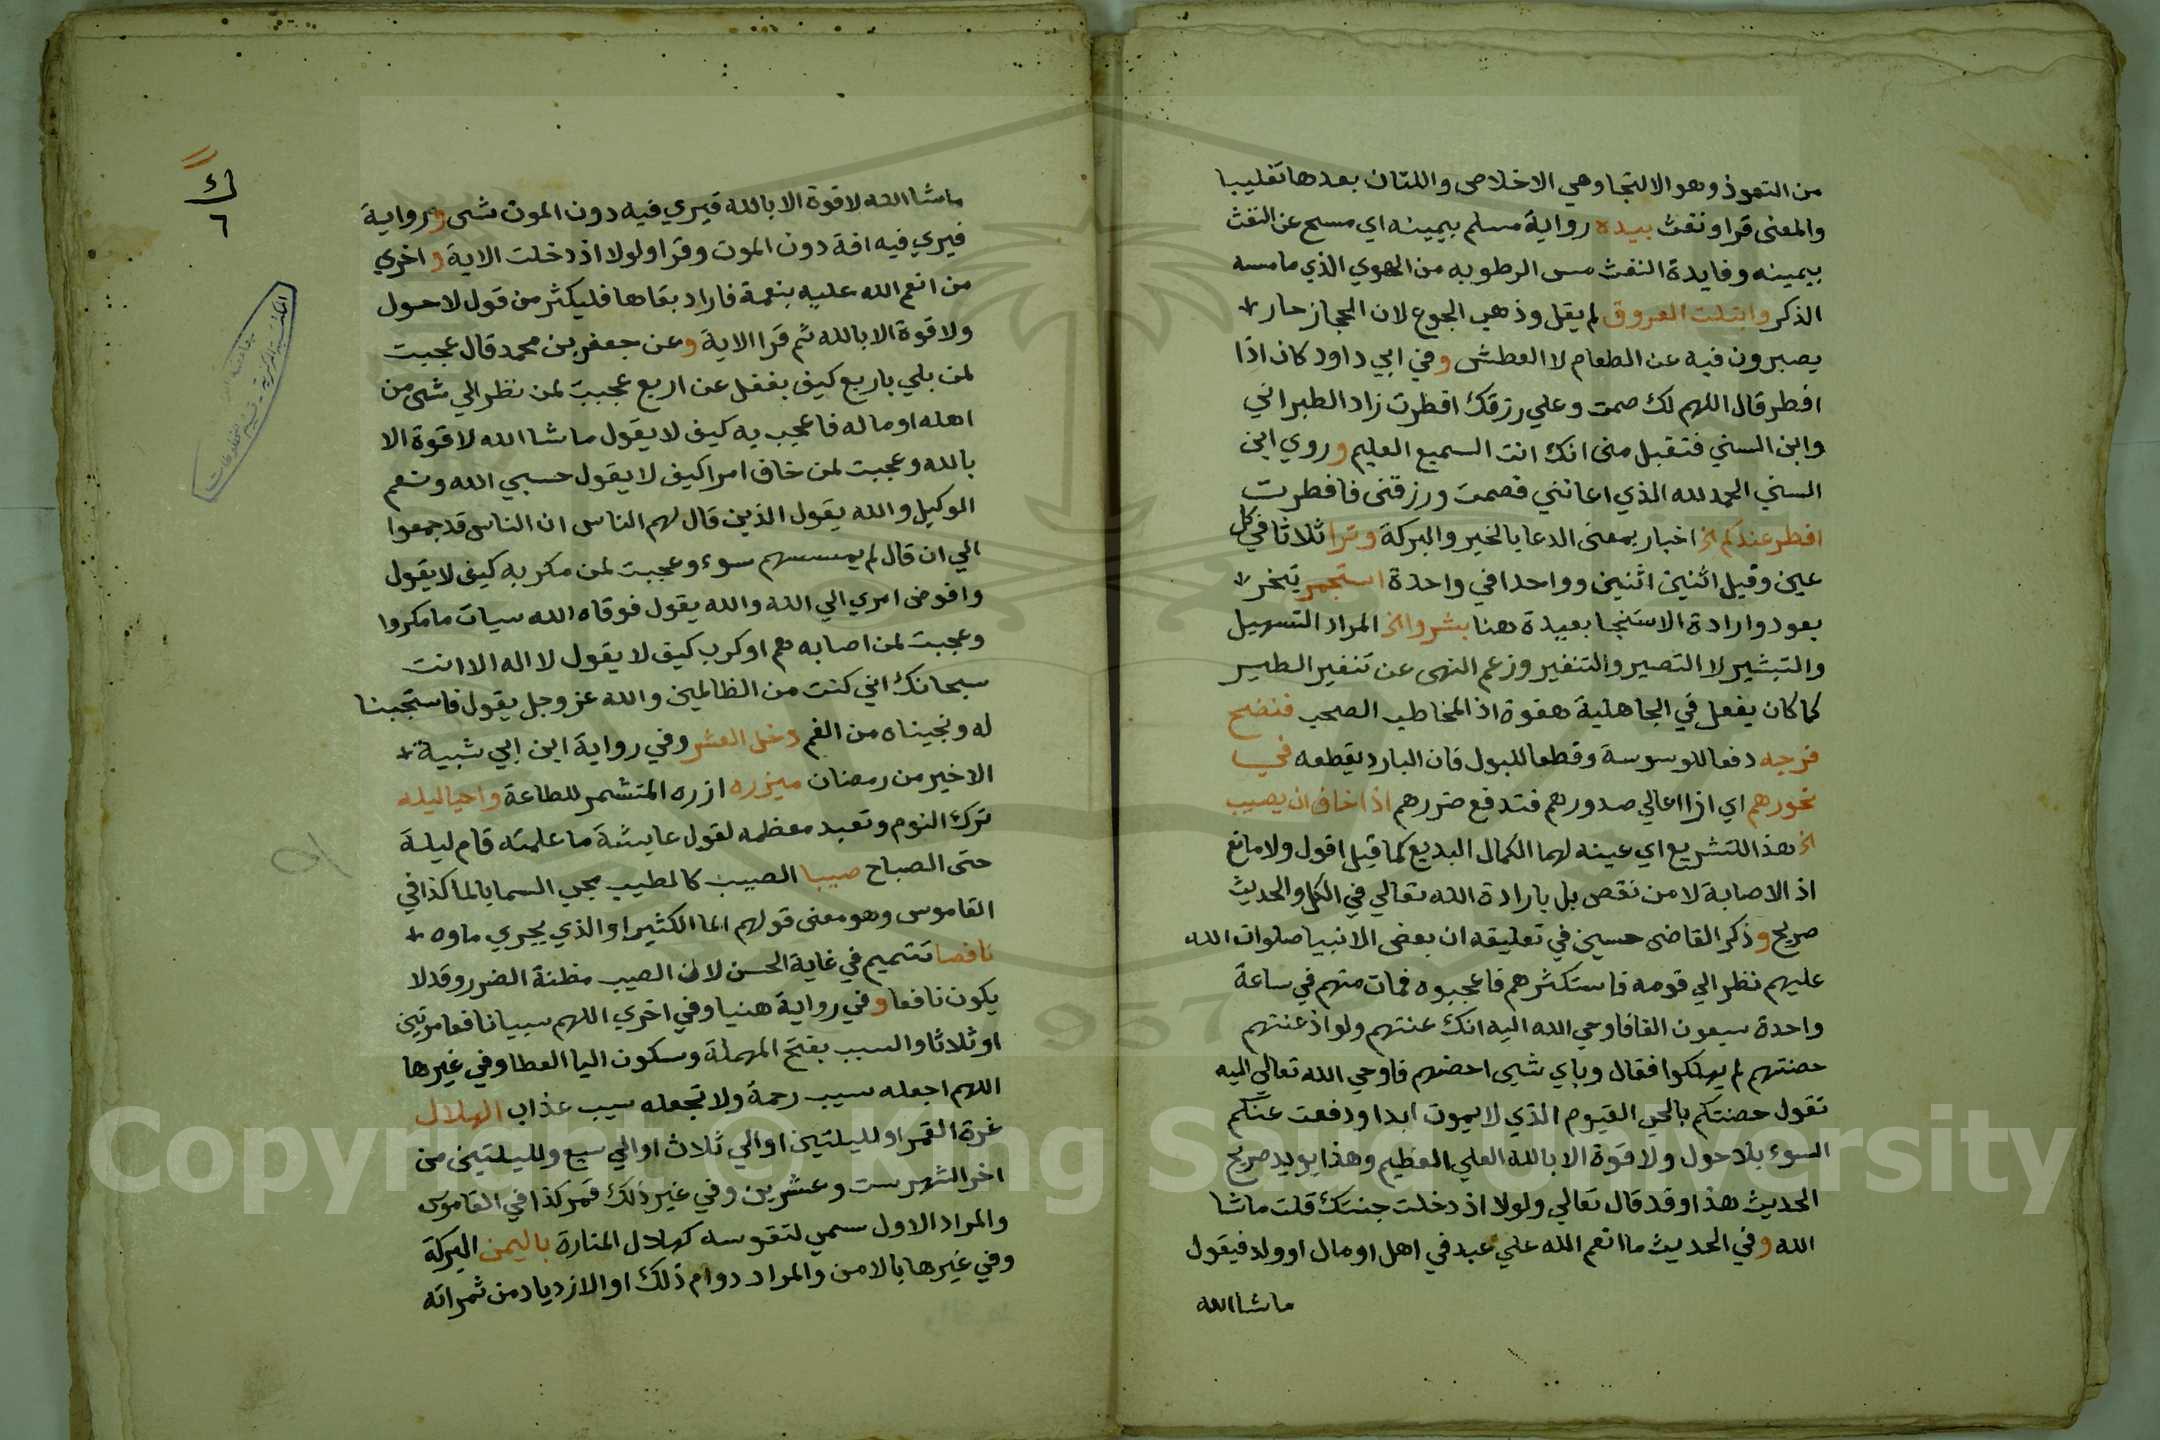 من التعوذ وهو الالتجا وهي الاخلاص واللتان بعدها تغليبا
والمعنى قرا ونفث بيده رواية مسلم بيمينه اي مسح عن النفث
بيمينه وفايدة النفث مس الرطوبه من الهوي الذي ماسه
الذكر وابتلت العروق لم يقل وذهب الجوع لان الحجاز حار
يصبرون فيه عن الطعام لا العطش وفي ابي داود كان اذا
افطر قال اللهم لك صمت وعلي رزقك افطرت زاد الطبراني
وابن السني فتقبل منى انك انت السميع العليم وروي ابن
السني الحمد لله الذي اعانني فصمت ورزقنى فافطرت
افطر عندكم الخ اخبار بمعنى الدعا بالخير والبركة وترا ثلاثا في كل
عين وقيل اثنين اثنين وواحدا في واحدة استجمر تبخر
بعود وارادة الاستنجا بعيدة هنا بشروا الخ المراد التسهيل
والتبشير لا التعسير والتنفير وزعم النهى عن تنفير الطير
كما كان يفعل في الجاهلية هفوة اذ المخاطب الصحب فنضح
فرجه دفعا للوسوسة وقطعا للبول فان البارد يقطعه في
نحورهم اي ازا اعالي صدورهم فتدفع ضررهم اذا خاف ان يصيب
الخ هذا للتشريع اي عينه لهما الكمال البديع كما قيل اقول ولا مانع
اذ الاصابة لا من نقص بل بارادة الله تعالي في الكل والحديث
صريح وذكر القاضى حسين في تعليقه ان بعض الانبيا صلوات الله
عليهم نظر الي قومه فاستكثرهم فاعجبوه فمات منهم في ساعة
واحدة سبعون الفا فاوحي الله اليه انك عنتهم ولو اذ عنتهم
حصنتهم لم يهلكوا فقال وباي شيى احصنهم فاوحي الله تعالي اليه
تقول حصنتكم بالحي القيوم الذي لا يموت ابدا ودفعت عنكم
السوء بلا حول ولا قوة الا بالله العلي العظيم وهذا يويد صريح
الحديث هذا وقد قال تعالي ولولا اذ دخلت جنتك قلت ماشا
الله وفي الحديث ما انعم الله علي عبد في اهل او مال او ولد فيقول
ماشا الله
ماشا الله لا قوة الا بالله فيري فيه دون الموت شى ورواية
فيري فيه افة دون الموت وقرا ولولا اذ دخلت الاية واخري
من انعم الله عليه بنعمة فاراد بقاها فليكثر من قول لا حول
ولا قوة الا بالله ثم قرا الاية وعن جعفر بن محمد قال عجبت
لمن بلي باربع كيف يغفل عن اربع عجبت لمن نظر الي شى من
اهله او ماله فاعجب به كيف لا يقول ماشا الله لا قوة الا
بالله وعجبت لمن خاف امرا كيف لا يقول حسبي الله ونعم
الوكيل والله يقول الذين قال لهم الناس ان الناس قد جمعوا
الي ان قال لم يمسسهم سوء وعجبت لمن مكر به كيف لا يقول
وافوض امري الي الله والله يقول فوقاه الله سيات ما مكروا
وعجبت لمن اصابه هم او كرب كيف لا يقول لا اله الا انت
سبحانك اني كنت من الظالمين والله عز وجل يقول فاستجبنا
له ونجيناه من الغم دخل العشر وفي رواية ابن ابي شيبة
الاخير من رمضان ميزره ازره المتشمر للطاعة واحيا ليله
ترك النوم وتعبد معظمه لقول عايشة ما علمته قام ليلة
حتى الصباح صيبا الصيب كالطيب مجى السما بالما كذا في
القاموس وهو معنى قولهم الما الكثير او الذي يجري ماوه
نافعا تتميم في غاية الحسن لان الصيب مظنة الضرر وقد لا
يكون نافعا وفي رواية هنيا وفي اخري اللهم سيبا نافعا مرتين
او ثلاثا والسيب بفتح المهملة وسكون اليا العطا وفي غيرها
اللهم اجعله سيب رحمة ولا تجعله سيب عذاب الهلال
غرة القمر او لليلتين او الي ثلاث او الي سبع ولليلتين من
اخر الشهر ست وعشرين وفي غير ذلك قمر كذا في القاموس
والمراد الاول سمي لتقوسه كهلال المنارة باليمن البركة
وفي غيرها بالامن والمراد دوام ذلك او الازدياد من ثمراته
ك
٦
Copyright © King Saud University
1957